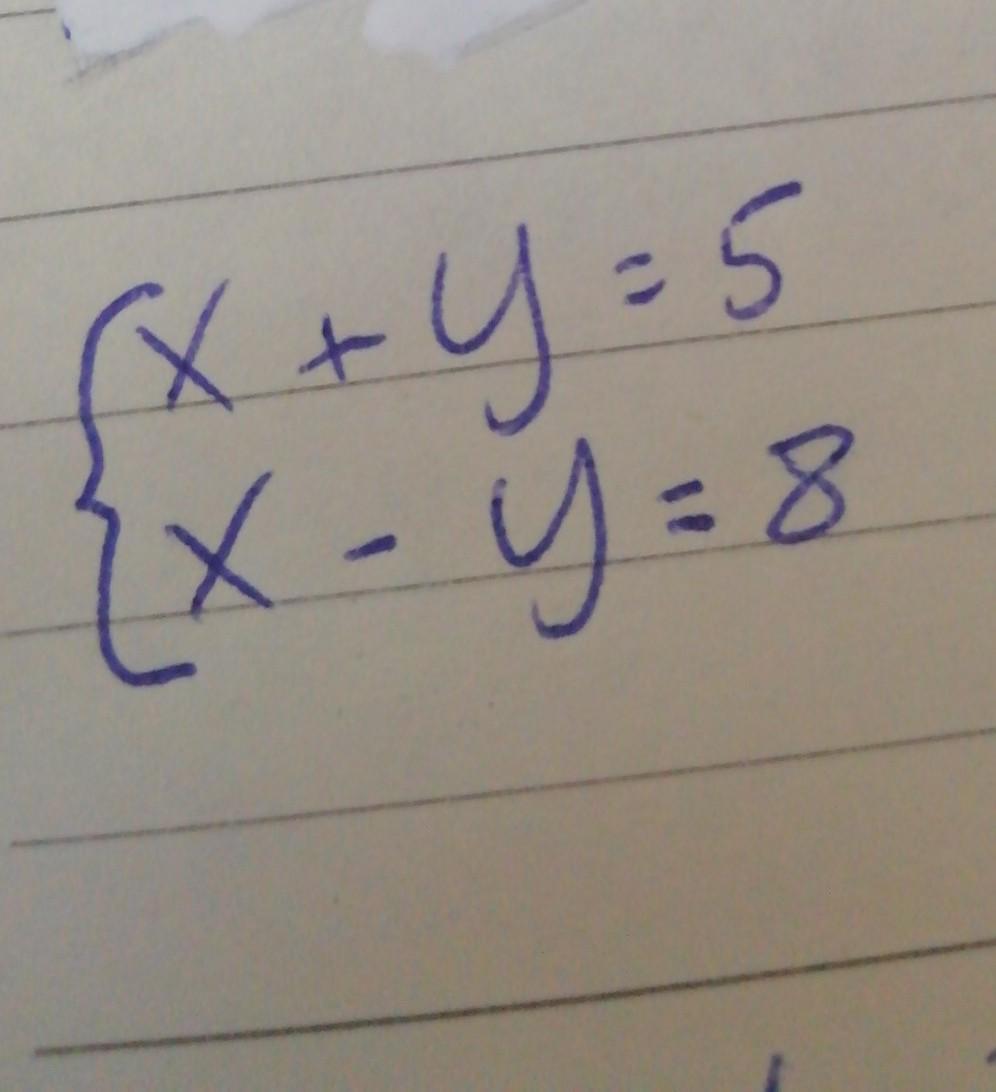 x + y = 5
x - y = 8